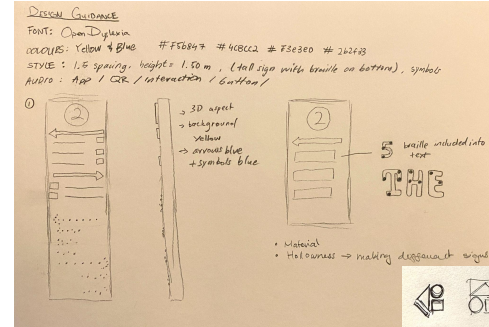 DESIGN GUIDANCE
FONT: OpenDyslexia
COLOURS: Yellow & Blue #F5b847 #4C8CC2 #F3e3e0
STYLE: 1.5 spacing, height = 1.50 m, (tall sign with braille on bottom), symbols
AUDIO: App / QR / Interaction / button /
①
2
→ 3D aspect
→ background yellow
→ arrows blue
+ symbols blue
2
5 braille included into
text
THE
• Material
• Holowness → making